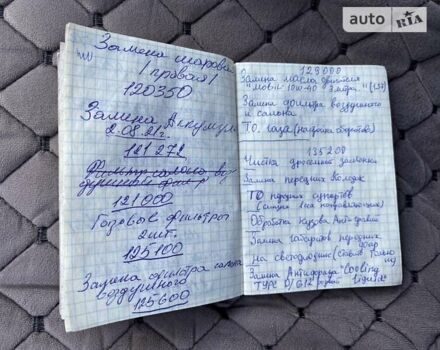 auto RIA
Замена шаровая
(правая)
120350
Замена Аккумул
2.08.21г.
121 272
Фильтр салона воз
душный фильтр
121000
Газовые фильтры
2шт.
125100
Замена фильтра салона
воздушного
125600
129000
Замена масла двигателя
"Mobil 10W-40
Замена фильтра воздушного
и салона.
ТО. газа (настройка оборотов)
135200
Чистка дроссельной заслонки
Замена передних колодок
ТО передних суппортов
Обработка кузова Анти
Замена габаритов передних
На светодиодные
Замена Антифриза "Cooling
TYPE D/G12 Liquid"